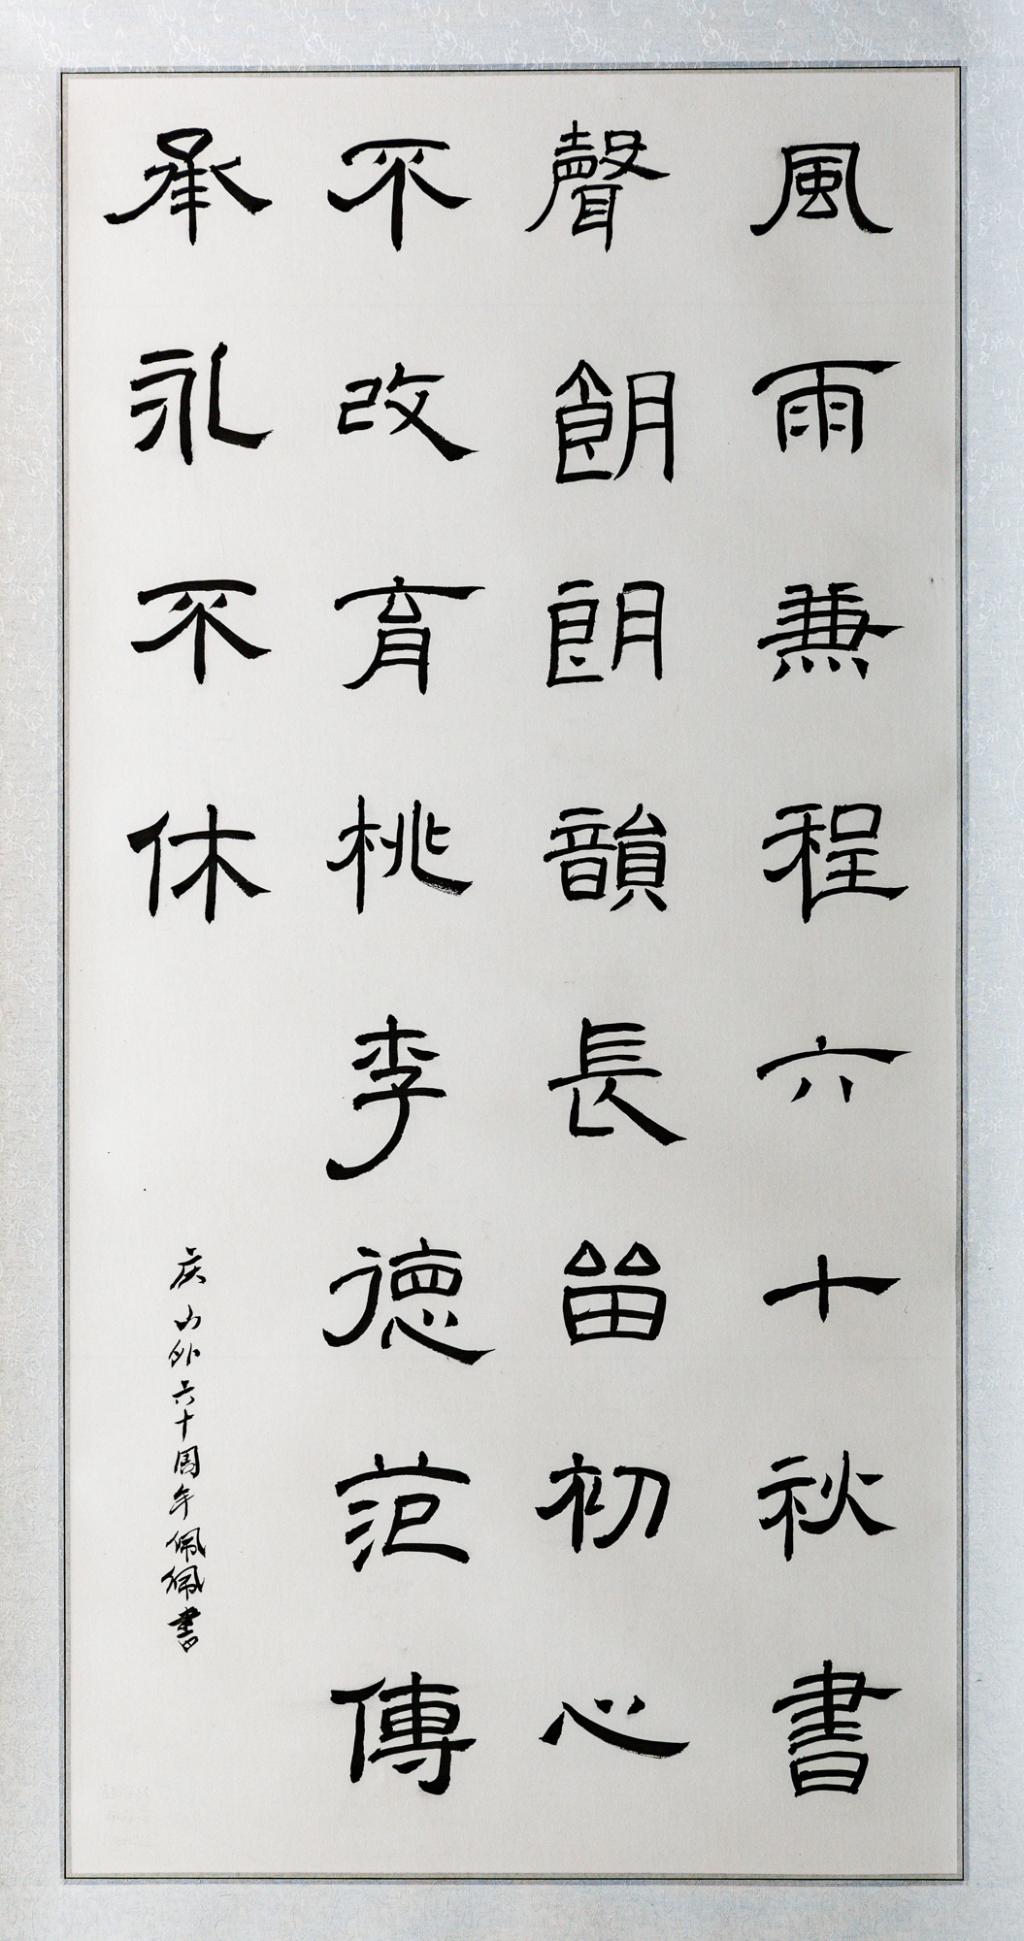 風雨兼程六十秋書
聲朗朗韻長留初心
不改育桃李德范傳
承永不休
庆山外六十周年佩佩書